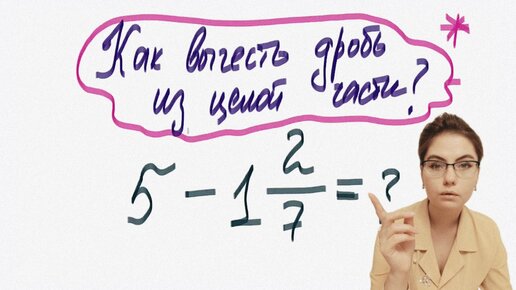 Как вычесть дробь
из целой части?
5 - 1 2/7 = ?